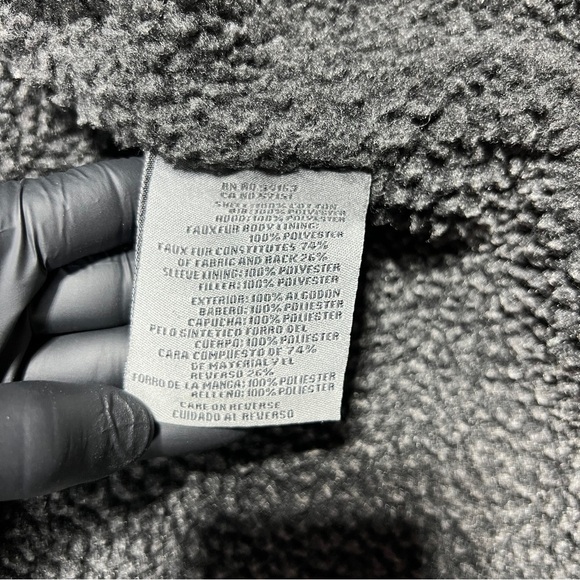 RN NO. 94163
CA NO. 57151
SHELL: 100% COTTON
BIB: 100% POLYESTER
HOOD: 100% POLYESTER
FAUX FUR BODY LINING:
100% POLYESTER
FAUX FUR CONSTITUTES 74%
OF FABRIC AND BACK 26%
SLEEVE LINING: 100% POLYESTER
FILLER: 100% POLYESTER
EXTERIOR: 100% ALGODON
BABERO: 100% POLIESTER
CAPUCHA: 100% POLIESTER
PELO SINTETICO FORRO DEL
CUERPO: 100% POLIESTER
CARA COMPUESTO DE 74%
DE MATERIAL Y EL
REVERSO 26%
FORRO DE LA MANGA: 100% POLIESTER
RELLENO: 100% POLIESTER
CARE ON REVERSE
CUIDADO AL REVERSO